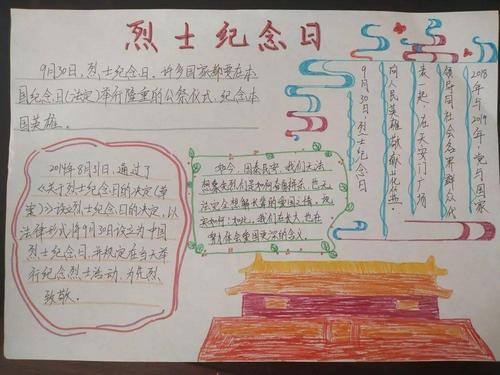 烈士纪念日
9月30日，烈士纪念日，许多国家都要在本
国纪念日（法定）举行隆重的公祭仪式，纪念本
国英雄。
2014年8月31日，通过了
《关于烈士纪念日的决定（草
案）》设立烈士纪念日的决定，以
法律形式将9月30日设立为中国
烈士纪念日，并规定在当天举
行纪念烈士活动，为先烈
致敬。
如今，国泰民安，我们无法
想象先烈们是如何奋勇拼杀，也无
法完全想解长辈的爱国之情，想
安如何：如此，我们在长大，也在
努力体会爱国更深的含义。
2018年与2019年，党与国家
领导同社会各界群众代
表一起，在天安门广场
向人民英雄敬献花蓝。
9月30日，烈士纪念日